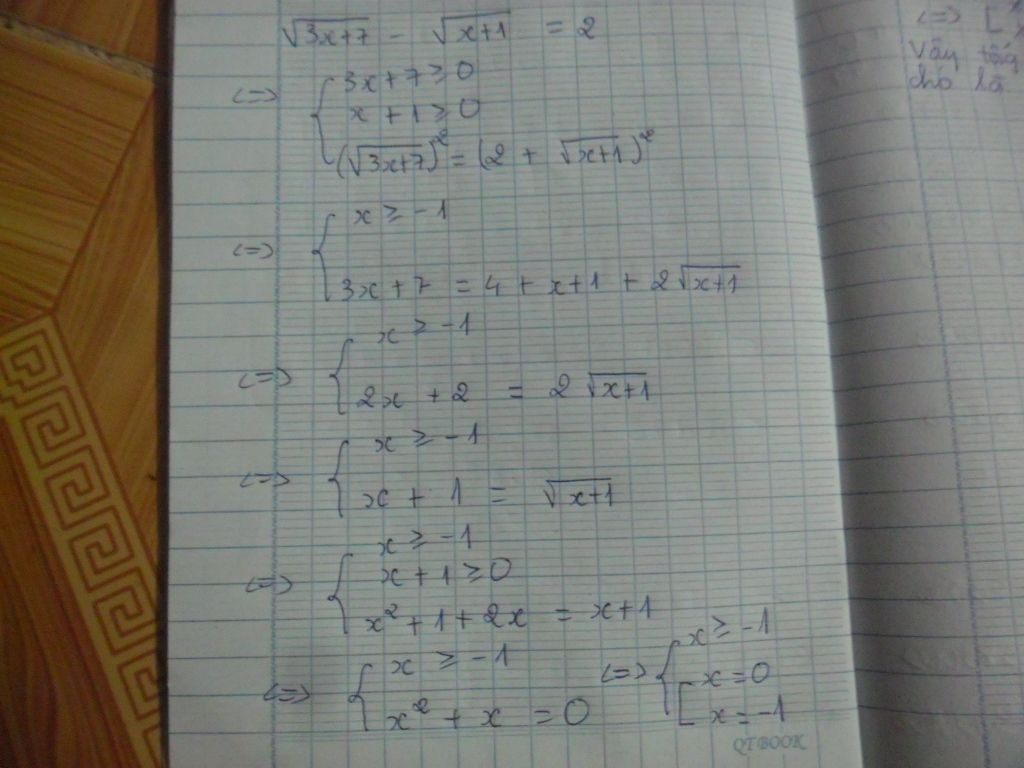 √3x+7 - √x+1 = 2
<=> { 3x+7 ≥ 0
x + 1 ≥ 0
(√3x+7)² = (2 + √x+1)²
<=> { x ≥ -1
3x+7 = 4 + x+1 + 2√x+1
<=> { x ≥ -1
2x + 2 = 2√x+1
<=> { x ≥ -1
x + 1 = √x+1
<=> { x ≥ -1
x+1 ≥ 0
x²+1+2x = x+1
<=> { x ≥ -1
x² + x = 0
<=> { x ≥ -1
[ x = 0
x = -1
QTBOOK
<=> [
Vậy
cho là